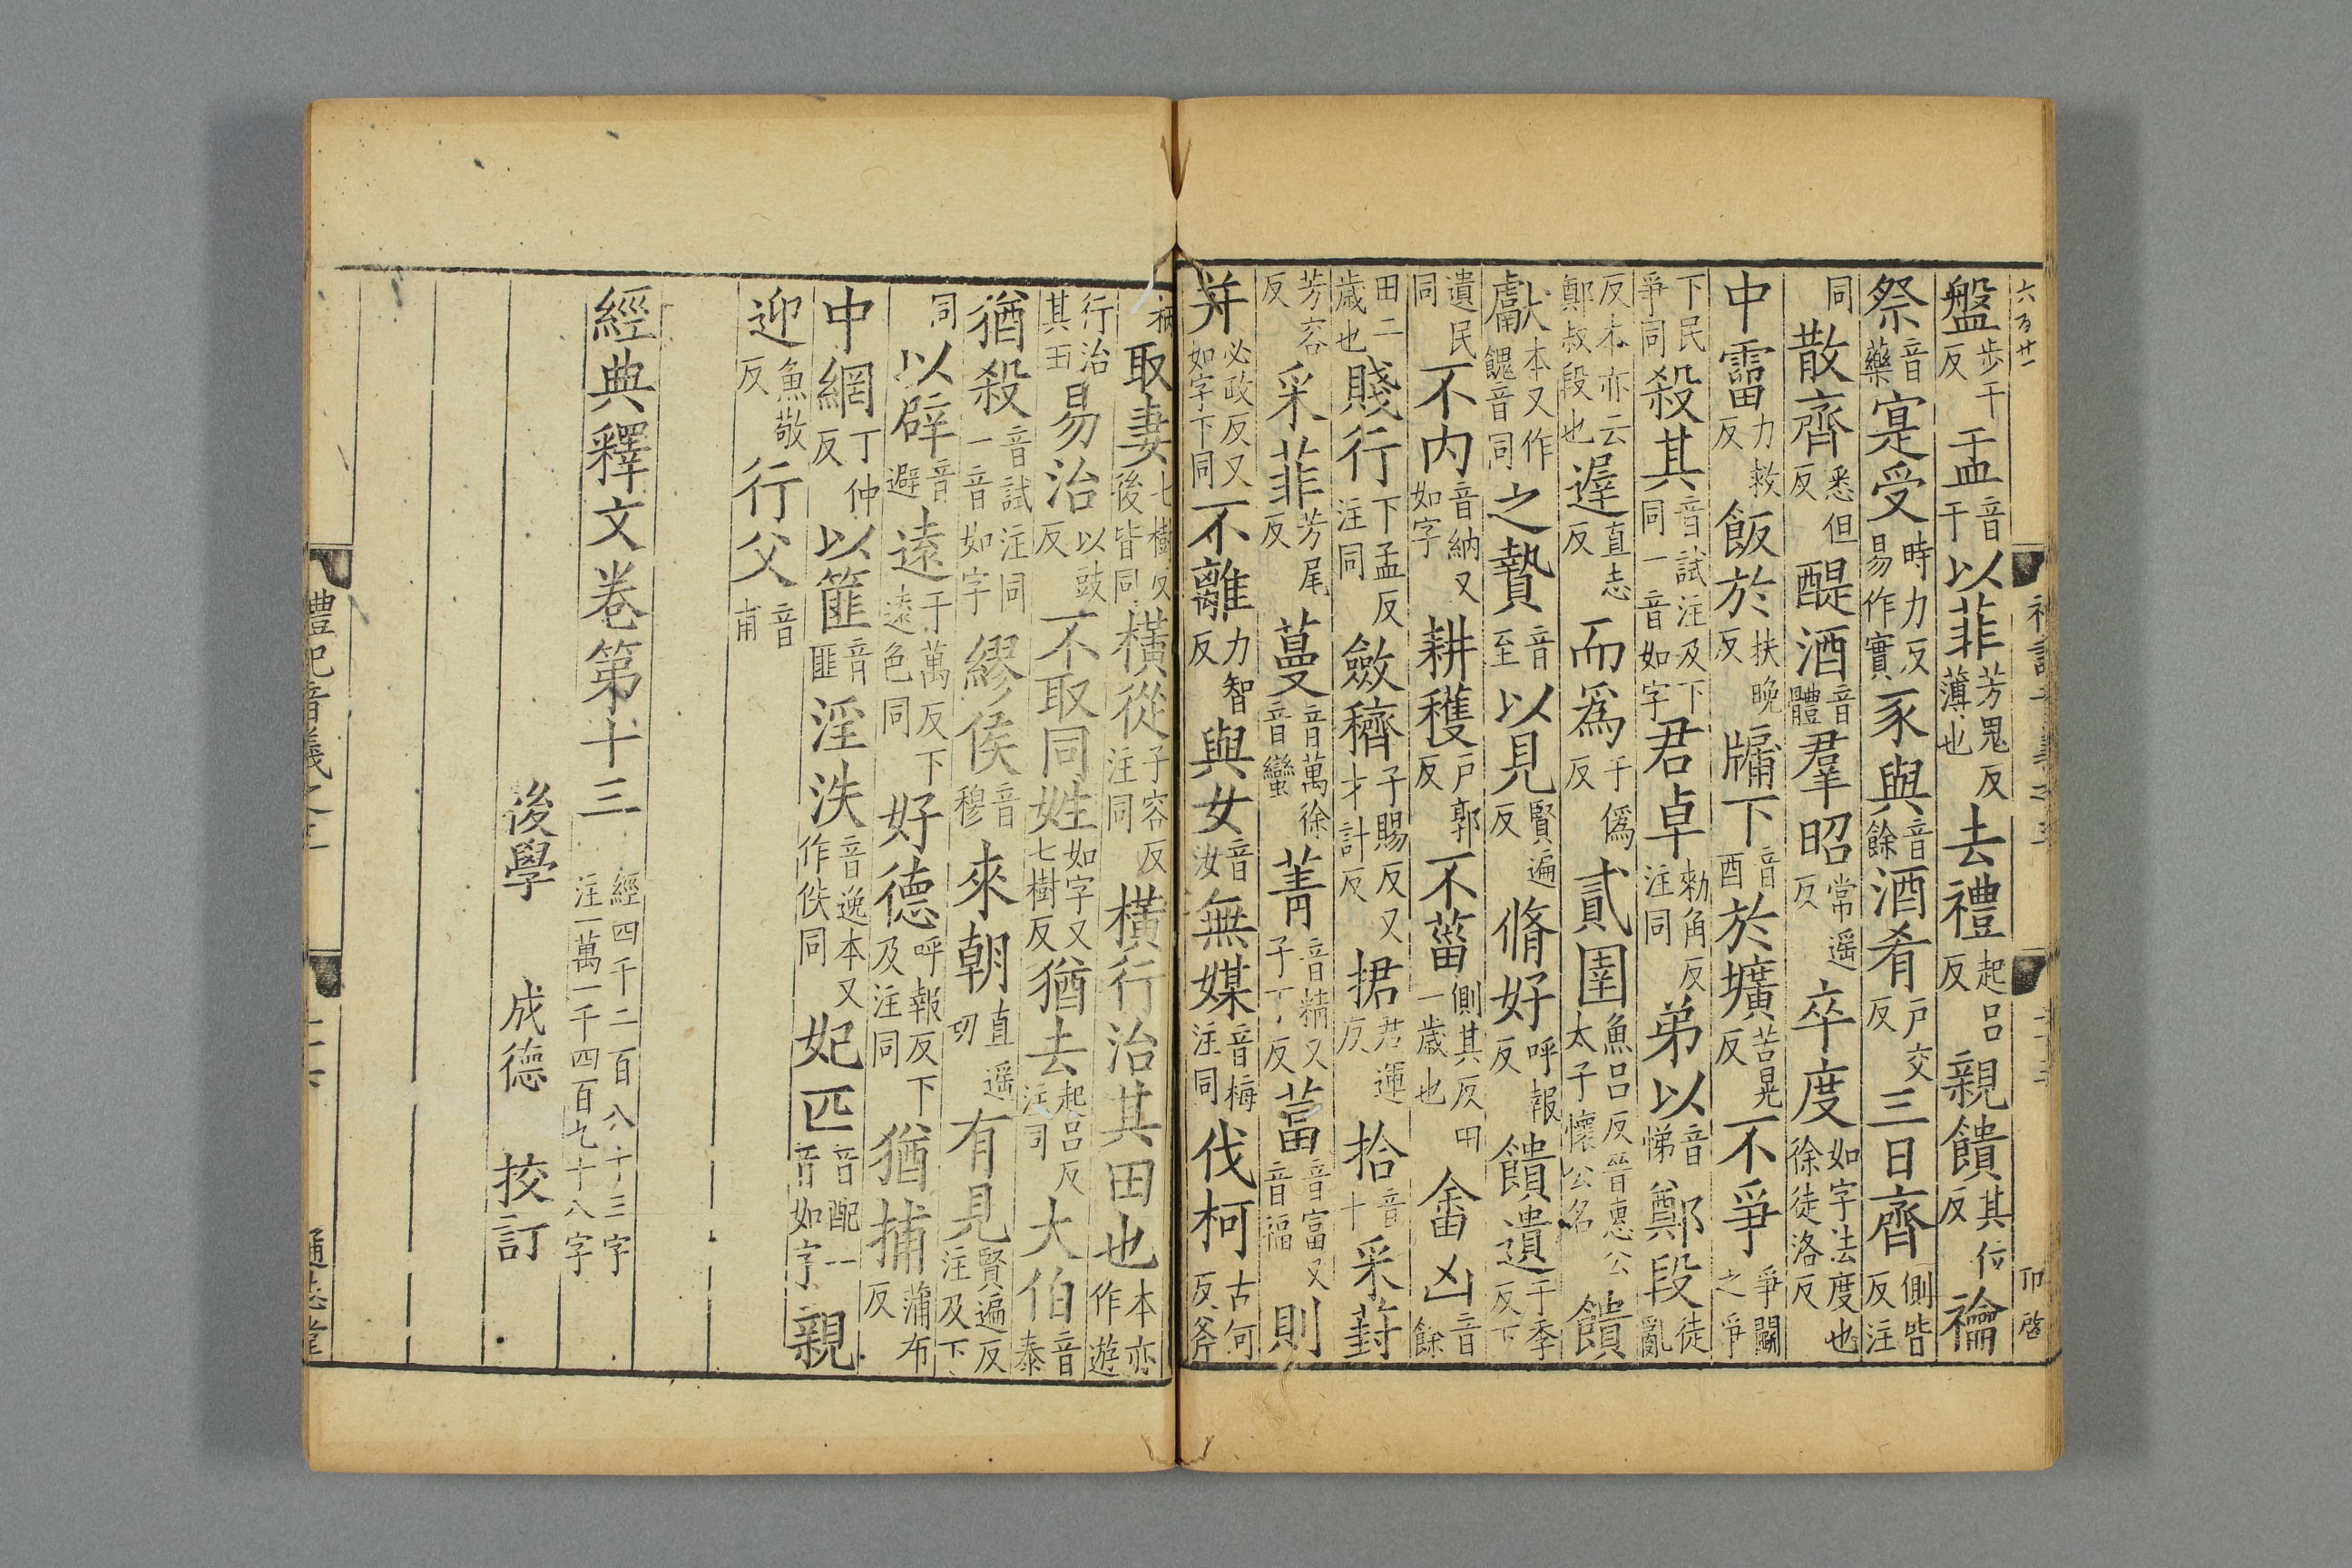 六百廿一
盤步干反盂音于以菲芳鬼反薄也去禮起呂反親饋其位反禴
祭音藥寔受時力反易作實豕與音餘酒肴戶交反三日齊側皆反注
同散齊悉但反醍酒音體羣昭常遥反卒度如字法度也徐徒洛反
中霤力救反飯於扶晚反牖下音酉於壙苦晃反不爭爭鬬之爭
下民爭同殺其音試注及下同一音如字君卓勑角反注同弟以音悌鄭段徒亂
反本亦云鄭叔段也遲直志反而爲于僞反貳圉魚呂反晉惠公太子懷公名饋
獻本又作餽音同之贄音至以見賢遍反脩好呼報反饋遺于季反下
遺民同不内音納又如字耕穫戶郭反不菑側其反田一歲也畬凶音餘
田二歲也賤行下孟反注同斂穧子賜反又才計反捃君運反拾音十采葑
芳容反采菲芳尾反蔓音萬徐音蠻菁音精又子丁反葍音富又音福則
并必政反又如字下同不離力智反與女音汝無媒音梅注同伐柯古何反斧
柄取妻七樹反後皆同橫從子容反注同橫行治其田也本亦作遊
行治其田易治以豉反不取同姓如字又七樹反猶去起呂反注同大伯音泰
猶殺音試注同一音如字繆侯音穆來朝直遥反有見賢遍反注及下
同以辟音避遠于萬反下遠色同好德呼報反下及注同猶捕蒲布反
中網丁仲反以篚音匪淫泆音逸本又作佚同妃匹音配一音如字親
迎魚敬反行父音甫
經典釋文卷第十三經四千二百八十三字注一萬一千四百九十八字
後學 成德 挍訂
禮記音義之三
通志堂